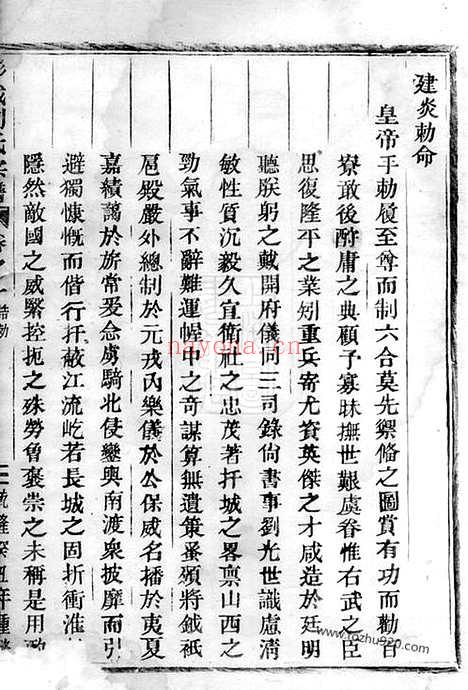 建炎勅命
皇帝手勅履至尊而制六合莫先禦脩之圖賞有功而勸百
寮敢後酧庸之典顧予寡昧撫世艱虞眷惟右武之臣
思復隆平之業矧重兵寄尤資英傑之才咸造於廷明
聽朕躬之戴開府儀同三司錄尚書事劉光世識慮淸
敏性質沉毅久宣衛社之忠茂著扞城之畧禀山西之
勁氣事不辭難運幄中之奇謀算無遺策蚤頒將鉞祇
扈殿嚴外總制於元戎內樂儀於公保威名播於夷夏
嘉績藹於旂常爰念虜騎北侵鑾輿南渡衆披靡而引
避獨慷慨而偕行扞蔽江流屹若長城之固折衝淮
隱然敵國之威緊控扼之殊勞曾褒崇之未稱是用
劉氏宗譜 卷之 誥勅 二 乾隆癸丑年重
nayona.cn
www.fozhu920.com